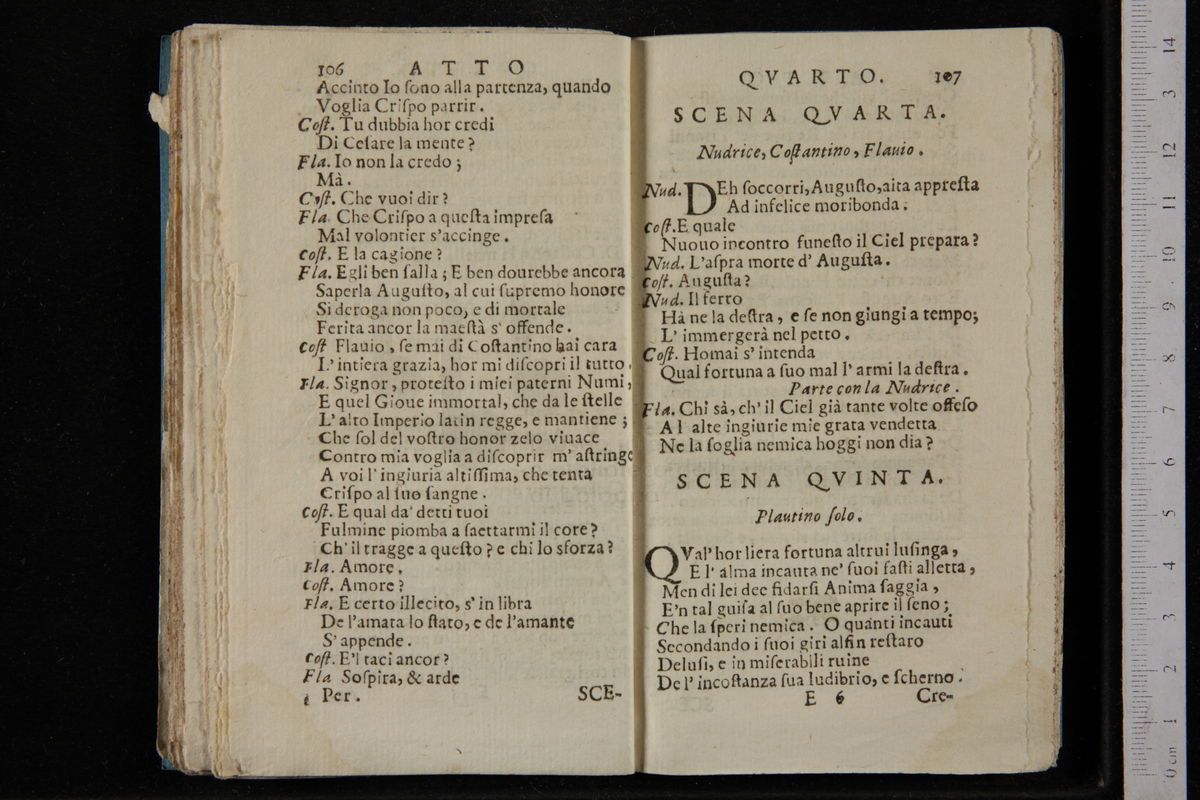 106 ATTO
Accinto Io ſono alla partenza, quando
Voglia Criſpo parrir.
Coſt. Tu dubbia hor credi
Di Ceſare la mente?
Fla. Io non la credo;
Mà.
Coſt. Che vuoi dir?
Fla. Che Criſpo a queſta impreſa
Mal volontier s'accinge.
Coſt. E la cagione?
Fla. Egli ben ſalla; E ben dourebbe ancora
Saperla Auguſto, al cui ſupremo honore
Si deroga non poco, e di mortale
Ferita ancor la maeſtà s' offende.
Coſt Flauio, ſe mai di Coſtantino hai cara
L' intiera grazia, hor mi diſcopri il tutto.
Fla. Signor, proteſto i miei paterni Numi,
E quel Gioue immortal, che da le ſtelle
L' alto Imperio latin regge, e mantiene;
Che ſol del voſtro honor zelo viuace
Contro mia voglia a diſcoprir m' aſtringe
A voi l' ingiuria altiſſima, che tenta
Criſpo al ſuo ſangne.
Coſt. E qual da' detti tuoi
Fulmine piomba a ſaettarmi il core?
Ch' il tragge a queſto? e chi lo sforza?
Fla. Amore.
Coſt. Amore?
Fla. E certo illecito, s' in libra
De l'amata lo ſtato, e de l'amante
S' appende.
Coſt. E'l taci ancor?
Fla Soſpira, & arde
Per. SCE-
QVARTO. 107
SCENA QVARTA.
Nudrice, Coſtantino, Flauio.
Nud. DEh ſoccorri, Auguſto, aita appreſta
Ad infelice moribonda.
Coſt. E quale
Nuouo incontro funeſto il Ciel prepara?
Nud. L'aſpra morte d' Auguſta.
Coſt. Auguſta?
Nud. Il ferro
Hà ne la deſtra, e ſe non giungi a tempo;
L' immergerà nel petto.
Coſt. Homai s' intenda
Qual fortuna a ſuo mal l' armi la deſtra.
Parte con la Nudrice.
Fla. Chi sà, ch' il Ciel già tante volte offeſo
A l alte ingiurie mie grata vendetta
Ne la ſoglia nemica hoggi non dia?
SCENA QVINTA.
Plautino ſolo.
QVal' hor liera fortuna altrui luſinga,
E l' alma incauta ne' ſuoi faſti alletta,
Men di lei dee fidarſi Anima ſaggia,
E'n tal guiſa al ſuo bene aprire il ſeno;
Che la ſperi nemica. O quanti incauti
Secondando i ſuoi giri alfin reſtaro
Deluſi, e in miſerabili ruine
De l' incoſtanza ſua ludibrio, e ſcherno.
E 6 Cre-
0 cm 1 2 3 4 5 6 7 8 9 10 11 12 13 14